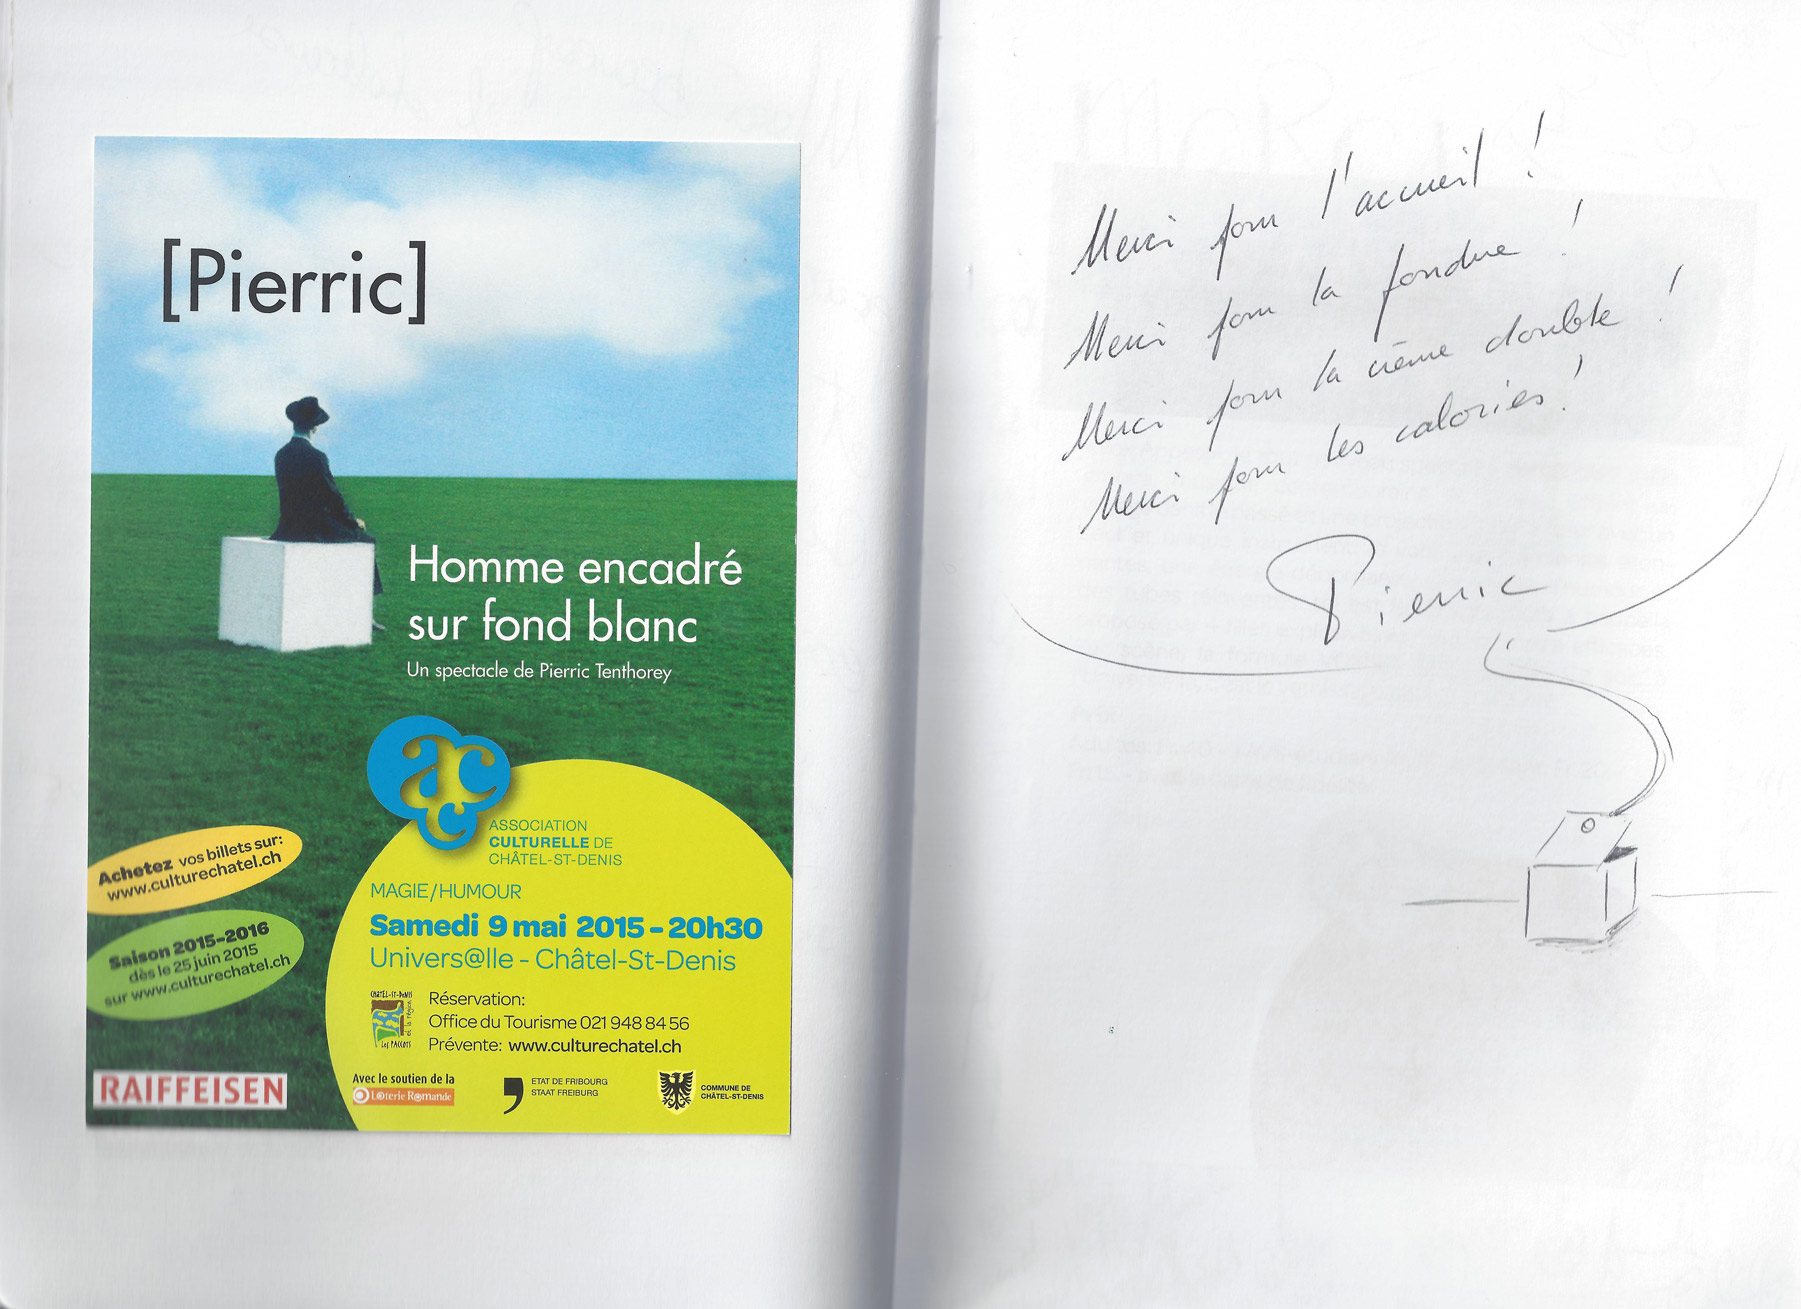 [Pierric]
Homme encadré
sur fond blanc
Un spectacle de Pierric Tenthorey
acc
ASSOCIATION
CULTURELLE DE
CHÂTEL-ST-DENIS
Achetez vos billets sur:
www.culturechatel.ch
Saison 2015-2016
dès le 25 juin 2015
sur www.culturechatel.ch
MAGIE/HUMOUR
Samedi 9 mai 2015 - 20h30
Univers@lle - Châtel-St-Denis
CHÂTEL-ST-DENIS
et la région
LES PACCOTS
Réservation:
Office du Tourisme 021 948 84 56
Prévente: www.culturechatel.ch
RAIFFEISEN
Avec le soutien de la
Loterie Romande
ETAT DE FRIBOURG
STAAT FREIBURG
COMMUNE DE
CHÂTEL-ST-DENIS
Merci pour l'accueil !
Merci pour la fondue !
Merci pour la crème double !
Merci pour les calories !
Pierric